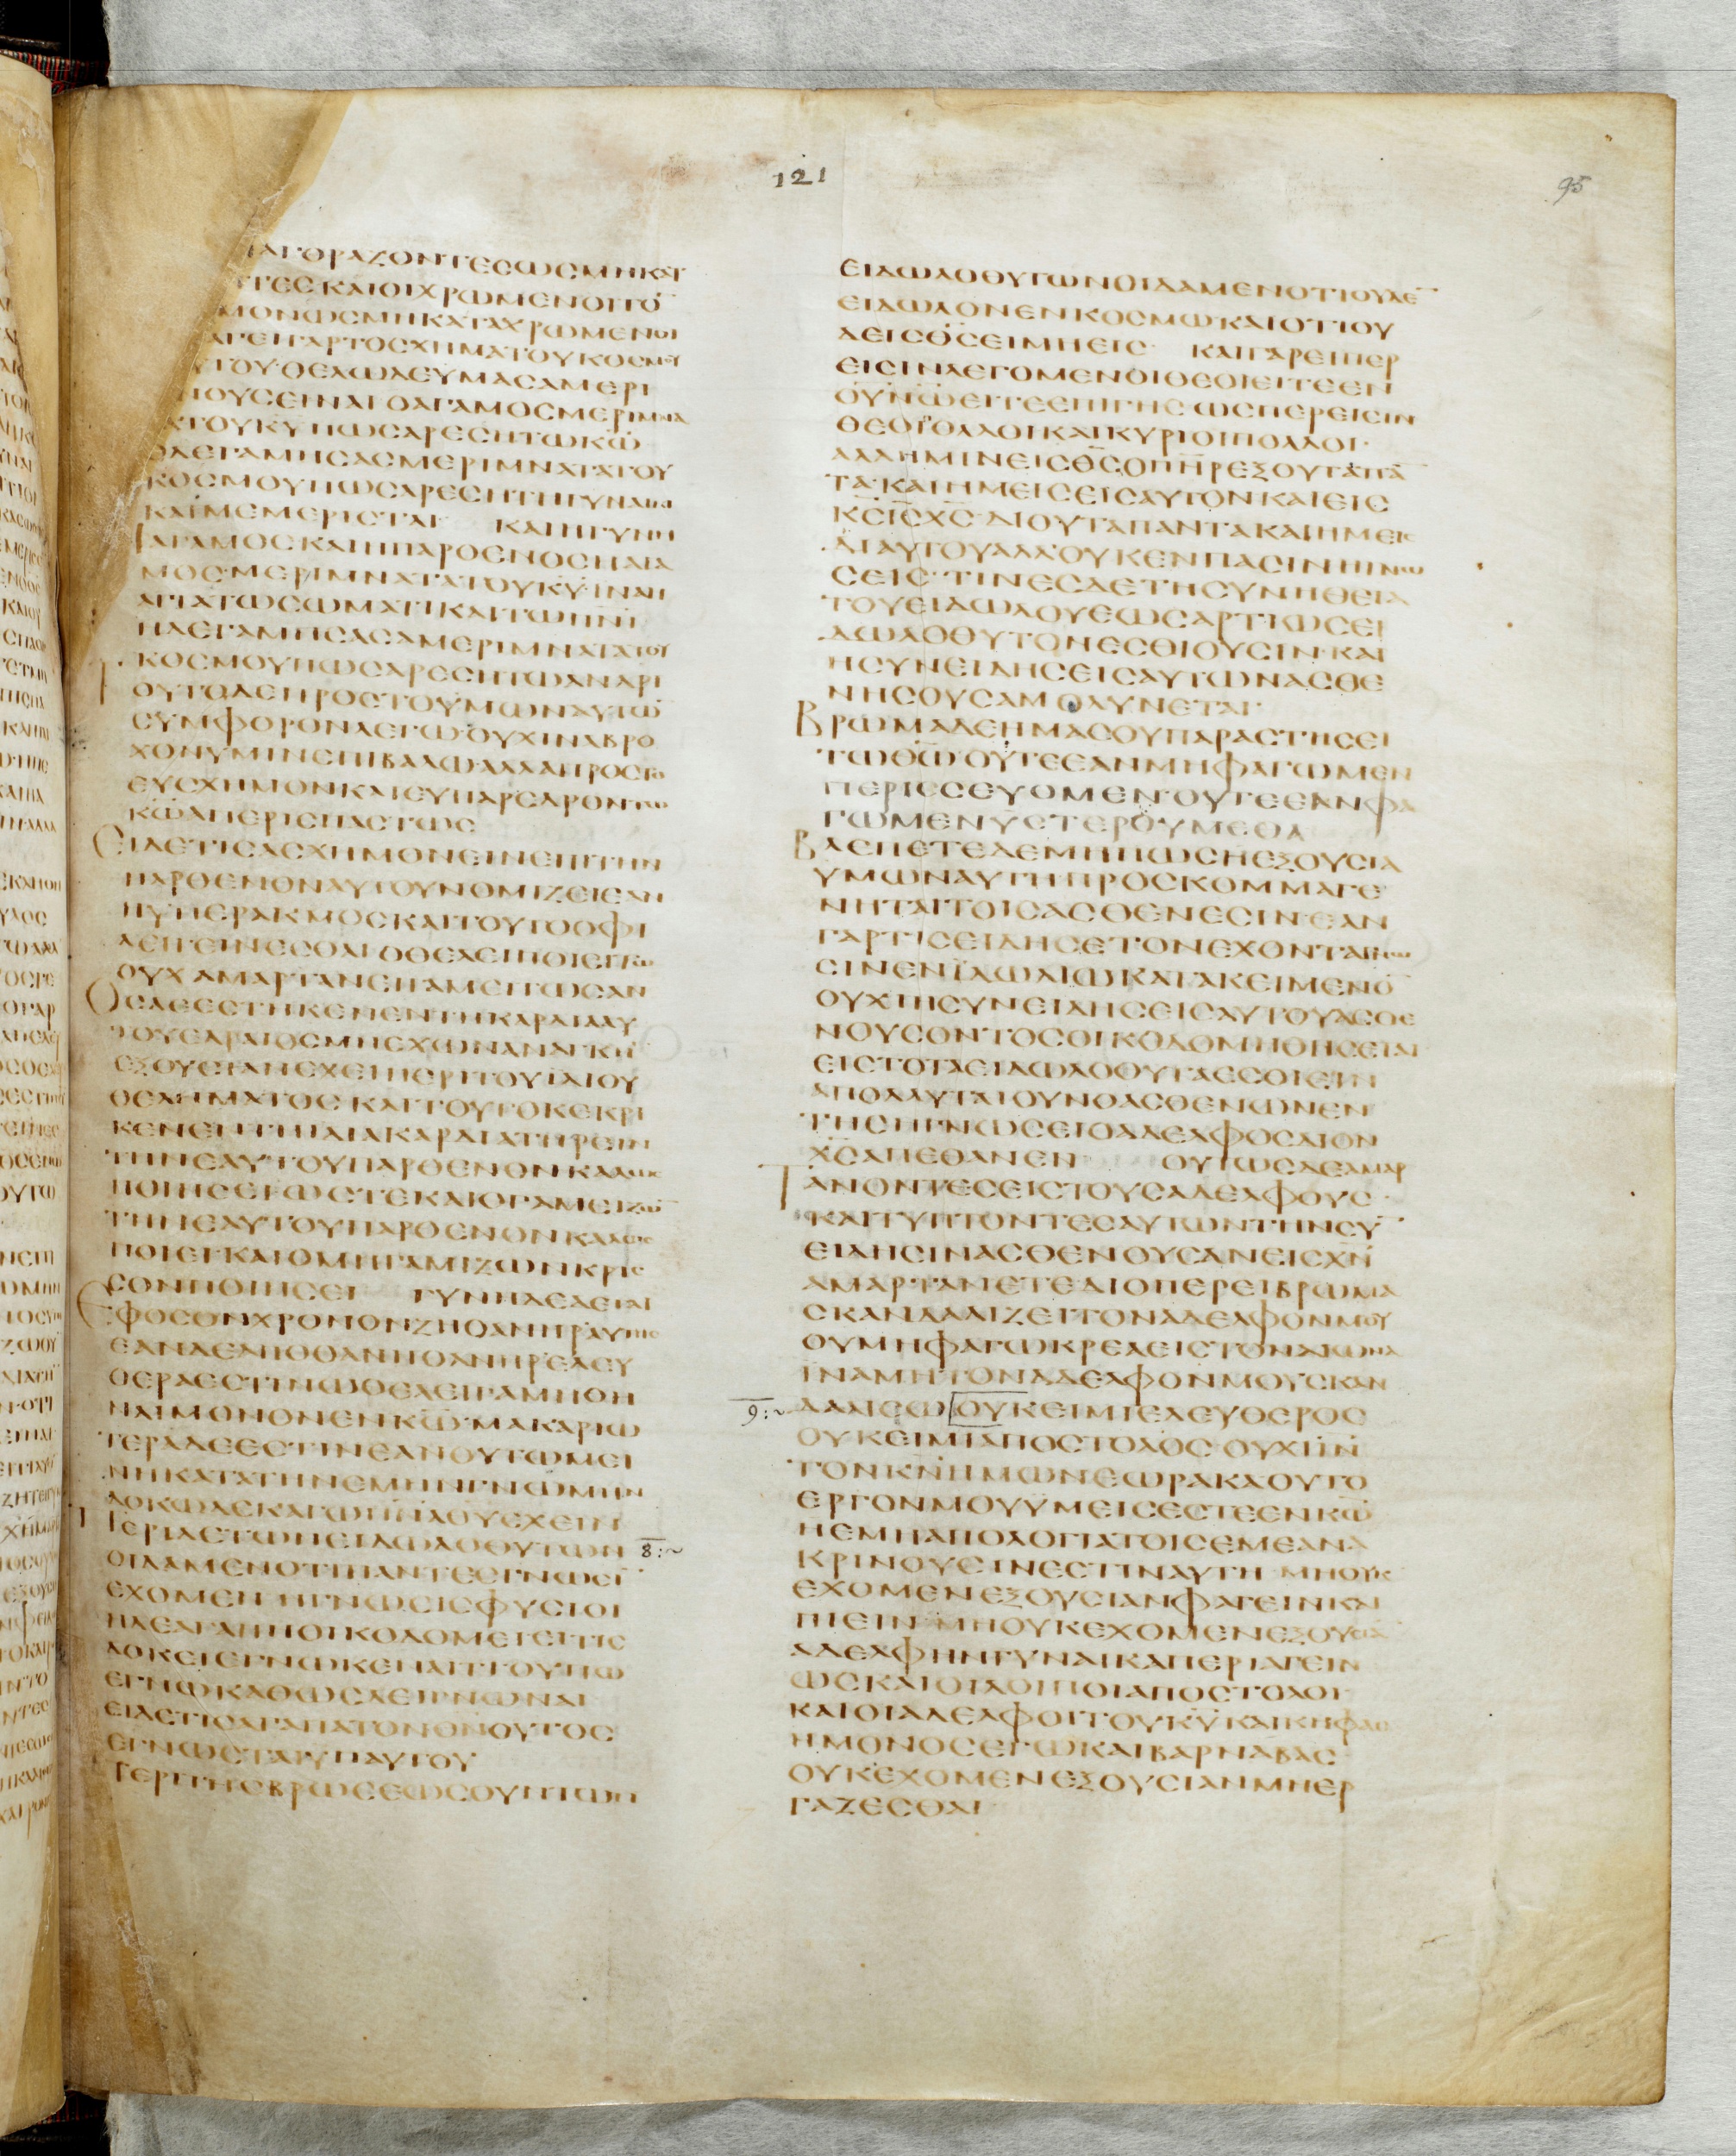 ΙΑΓΟΡΑΖΟΝΤΕCΩCΜΗΚΑΤ
ΤΕCΚΑΙΟΙΧΡΩΜΕΝΟΙΤΟ̅
ΜΟΝΩCΜΗΚΑΤΑΧΡΩΜΕΝΟΙ
ΑΓΕΙΓΑΡΤΟCΧΗΜΑΤΟΥΚΟCΜΟΥ
ΤΟΥ·ΘΕΛΩΔΕΥΜΑCΑΜΕΡΙ
ΝΟΥCΕΙΝΑΙΟΑΓΑΜΟCΜΕΡΙΜΝΑ
ΤΑΤΟΥΚ̅Υ̅ΠΩCΑΡΕCΗΤΩΚ̅Ω̅
ΟΔΕΓΑΜΗCΑCΜΕΡΙΜΝΑΤΑΤΟΥ
ΚΟCΜΟΥΠΩCΑΡΕCΗΤΗΓΥΝΑΙΚΙ
ΚΑΙΜΕΜΕΡΙCΤΑΙ ΚΑΙΗΓΥΝΗ
ΑΓΑΜΟCΚΑΙΗΠΑΡΘΕΝΟCΗΑΓΑ
ΜΟC·ΜΕΡΙΜΝΑΤΑΤΟΥΚ̅Υ̅·ΙΝΑΗ
ΑΓΙΑΤΩCΩΜΑΤΙΚΑΙΤΩΠ̅Ν̅Ι̅
ΗΔΕΓΑΜΗCΑCΑΜΕΡΙΜΝΑΤΑΤΟΥ
ΚΟCΜΟΥΠΩCΑΡΕCΗΤΩΑΝΔΡΙ
ΤΟΥΤΟΔΕΠΡΟCΤΟΥΜΩΝΑΥΤΩ̅
CΥΜΦΟΡΟΝΛΕΓΩ·ΟΥΧΙΝΑΒΡΟ
ΧΟΝΥΜΙΝΕΠΙΒΑΛΩ·ΑΛΛΑΠΡΟCΤΟ
ΕΥCΧΗΜΟΝΚΑΙΕΥΠΑΡΕΔΡΟΝΤΩ
Κ̅Ω̅ΑΠΕΡΙCΠΑCΤΩC
ΕΙΔΕΤΙCΑCΧΗΜΟΝΕΙΝΕΠΙΤΗΝ
ΠΑΡΘΕΝΟΝΑΥΤΟΥΝΟΜΙΖΕΙΕΑΝ
ΗΥΠΕΡΑΚΜΟCΚΑΙΤΟΥΤΟΟΦΙ
ΛΕΙΓΕΙΝΕCΘΑΙΟΘΕΛΕΙΠΟΙΕΙΤΩ
ΟΥΧΑΜΑΡΤΑΝΕΙΓΑΜΕΙΤΩCΑΝ
ΟCΔΕΕCΤΗΚΕΝΕΝΤΗΚΑΡΔΙΑΑΥ
ΤΟΥΕΔΡΑΙΟCΜΗΕΧΩΝΑΝΑΓΚΗ̅
ΕΞΟΥCΙΑΝΕΧΕΙΠΕΡΙΤΟΥΙΔΙΟΥ
ΘΕΛΗΜΑΤΟCΚΑΙΤΟΥΤΟΚΕΚΡΙ
ΚΕΝΕΝΤΗΙΔΙΑΚΑΡΔΙΑΤΗΡΕΙΝ
ΤΗΝΕΑΥΤΟΥΠΑΡΘΕΝΟΝΚΑΛΩC
ΠΟΙΗCΕΙΩCΤΕΚΑΙΟΓΑΜΕΙΖΩ̅
ΤΗΝΕΑΥΤΟΥΠΑΡΘΕΝΟΝΚΑΛΩC
ΠΟΙΕΙΚΑΙΟΜΗΓΑΜΙΖΩΝΚΡΙC
CΟΝΠΟΙΗCΕΙ ΓΥΝΗΔΕΔΕΤΑΙ
ΕΦΟCΟΝΧΡΟΝΟΝΖΗΟΑΝΗΡΑΥΤΗC
ΕΑΝΔΕΑΠΟΘΑΝΗΟΑΝΗΡΕΛΕΥ
ΘΕΡΑΕCΤΙΝΩΘΕΛΕΙΓΑΜΗΘΗ
ΝΑΙΜΟΝΟΝΕΝΚ̅Ω̅·ΜΑΚΑΡΙΩ
ΤΕΡΑΔΕΕCΤΙΝΕΑΝΟΥΤΩΜΕΙ
ΝΗΚΑΤΑΤΗΝΕΜΗΝΓΝΩΜΗΝ
ΔΟΚΩΔΕΚΑΓΩΠ̅Ν̅Α̅Θ̅Υ̅ΕΧΕΙΝ
ΠΕΡΙΔΕΤΩΝΕΙΔΩΛΟΘΥΤΩΝ 8:~
ΟΙΔΑΜΕΝΟΤΙΠΑΝΤΕCΓΝΩCΙ̅
ΕΧΟΜΕΝ·ΗΓΝΩCΙCΦΥCΙΟΙ
ΗΔΕΑΓΑΠΗΟΙΚΟΔΟΜΕΙΕΙΤΙC
ΔΟΚΕΙΕΓΝΩΚΕΝΑΙΤΙΟΥΠΩ
ΕΓΝΩΚΑΘΩCΔΕΙΓΝΩΝΑΙ
ΕΙΔΕΤΙCΑΓΑΠΑΤΟΝΘ̅Ν̅ΟΥΤΟC
ΕΓΝΩCΤΑΙΥΠΑΥΤΟΥ
ΠΕΡΙΤΗCΒΡΩCΕΩCΟΥΝΤΩΝ
121
95
ΕΙΔΩΛΟΘΥΤΩΝΟΙΔΑΜΕΝΟΤΙΟΥΔΕ̅
ΕΙΔΩΛΟΝΕΝΚΟCΜΩΚΑΙΟΤΙΟΥ
ΔΕΙCΘ̅C̅ΕΙΜΗΕΙC ΚΑΙΓΑΡΕΙΠΕΡ
ΕΙCΙΝΛΕΓΟΜΕΝΟΙΘΕΟΙΕΙΤΕΕΝ
ΟΥ̅Ν̅Ω̅ΕΙΤΕΕΠΙΓΗCΩCΠΕΡΕΙCΙΝ
ΘΕΟΙΠΟΛΛΟΙΚΑΙΚΥΡΙΟΙΠΟΛΛΟΙ·
ΑΛΛΗΜΙΝΕΙCΘ̅C̅ΟΠ̅Η̅Ρ̅ΕΞΟΥΤΑΠΑ̅
ΤΑ·ΚΑΙΗΜΕΙCΕΙCΑΥΤΟΝΚΑΙΕΙC
Κ̅C̅Ι̅C̅Χ̅C̅·ΔΙΟΥΤΑΠΑΝΤΑΚΑΙΗΜΕΙC
ΔΙΑΥΤΟΥΑΛΛΟΥΚΕΝΠΑCΙΝΗΓΝΩ
CΕΙC·ΤΙΝΕCΔΕΤΗCΥΝΗΘΕΙΑ
ΤΟΥΕΙΔΩΛΟΥΕΩCΑΡΤΙΩCΕΙ
ΔΩΛΟΘΥΤΟΝΕCΘΙΟΥCΙΝ·ΚΑΙ
ΗCΥΝΕΙΔΗCΕΙCΑΥΤΩΝΑCΘΕ
ΝΗCΟΥCΑΜΟΛΥΝΕΤΑΙ·
ΒΡΩΜΑΔΕΗΜΑCΟΥΠΑΡΑCΤΗCΕΙ
ΤΩΘ̅Ω̅ΟΥΤΕΕΑΝΜΗΦΑΓΩΜΕΝ
ΠΕΡΙCCΕΥΟΜΕΝ·ΟΥΤΕΕΑΝΦΑ
ΓΩΜΕΝΥCΤΕΡΟΥΜΕΘΑ
ΒΛΕΠΕΤΕΔΕΜΗΠΩCΗΕΞΟΥCΙΑ
ΥΜΩΝΑΥΤΗΠΡΟCΚΟΜΜΑΓΕ
ΝΗΤΑΙΤΟΙCΑCΘΕΝΕCΙΝ·ΕΑΝ
ΓΑΡΤΙCΕΙΔΗCΕΤΟΝΕΧΟΝΤΑΓΝΩ
CΙΝΕΝΙΔΩΛΙΩΚΑΤΑΚΕΙΜΕΝΟ̅
ΟΥΧΙΗCΥΝΕΙΔΗCΕΙCΑΥΤΟΥΑCΘΕ
ΝΟΥCΟΝΤΟCΟΙΚΟΔΟΜΗΘΗCΕΤΑΙ
ΕΙCΤΟΤΑΕΙΔΩΛΟΘΥΤΑΕCΘΙΕΙΝ
ΑΠΟΛΛΥΤΑΙΟΥΝΟΑCΘΕΝΩΝΕΝ
ΤΗCΗΓΝΩCΕΙΟΑΔΕΛΦΟCΔΙΟΝ
Χ̅C̅ΑΠΕΘΑΝΕΝ ΟΥΤΩCΔΕΑΜΑΡ
ΤΑΝΟΝΤΕCΕΙCΤΟΥCΑΔΕΛΦΟΥC·
ΚΑΙΤΥΠΤΟΝΤΕCΑΥΤΩΝΤΗΝCΥ̅
ΕΙΔΗCΙΝΑCΘΕΝΟΥCΑΝΕΙCΧ̅Ν̅
ΑΜΑΡΤΑΝΕΤΕΔΙΟΠΕΡΕΙΒΡΩΜΑ
CΚΑΝΔΑΛΙΖΕΙΤΟΝΑΔΕΛΦΟΝΜΟΥ
ΟΥΜΗΦΑΓΩΚΡΕΑΕΙCΤΟΝΑΙΩΝΑ
ΙΝΑΜΗΤΟΝΑΔΕΛΦΟΝΜΟΥCΚΑΝ
9:~ ΔΑΛΙCΩΟΥΚΕΙΜΙΕΛΕΥΘΕΡΟC
ΟΥΚΕΙΜΙΑΠΟCΤΟΛΟC·ΟΥΧΙΙ̅Ν̅
ΤΟΝΚ̅Ν̅ΗΜΩΝΕΩΡΑΚΑΟΥΤΟ
ΕΡΓΟΝΜΟΥΥΜΕΙCΕCΤΕΕΝΚ̅Ω̅
ΗΕΜΗΑΠΟΛΟΓΙΑΤΟΙCΕΜΕΑΝΑ
ΚΡΙΝΟΥCΙΝΕCΤΙΝΑΥΤΗ·ΜΗΟΥΚ
ΕΧΟΜΕΝΕΞΟΥCΙΑΝΦΑΓΕΙΝΚΑΙ
ΠΙΕΙΝ·ΜΗΟΥΚΕΧΟΜΕΝΕΞΟΥCΙΑ
ΑΔΕΛΦΗΝΓΥΝΑΙΚΑΠΕΡΙΑΓΕΙΝ
ΩCΚΑΙΟΙΛΟΙΠΟΙΑΠΟCΤΟΛΟΙ
ΚΑΙΟΙΑΔΕΛΦΟΙΤΟΥΚ̅Υ̅ΚΑΙΚΗΦΑC
ΗΜΟΝΟCΕΓΩΚΑΙΒΑΡΝΑΒΑC
ΟΥΚΕΧΟΜΕΝΕΞΟΥCΙΑΝΜΗΕΡ
ΓΑΖΕCΘΑΙ